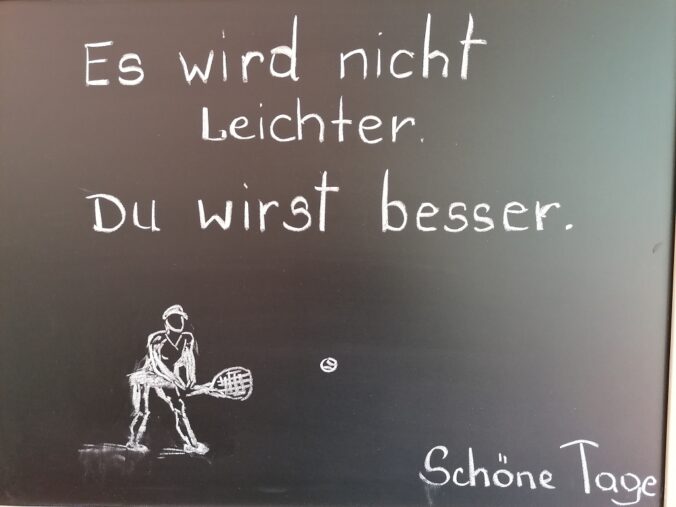 Es wird nicht
Leichter.
Du wirst besser.
Schöne Tage